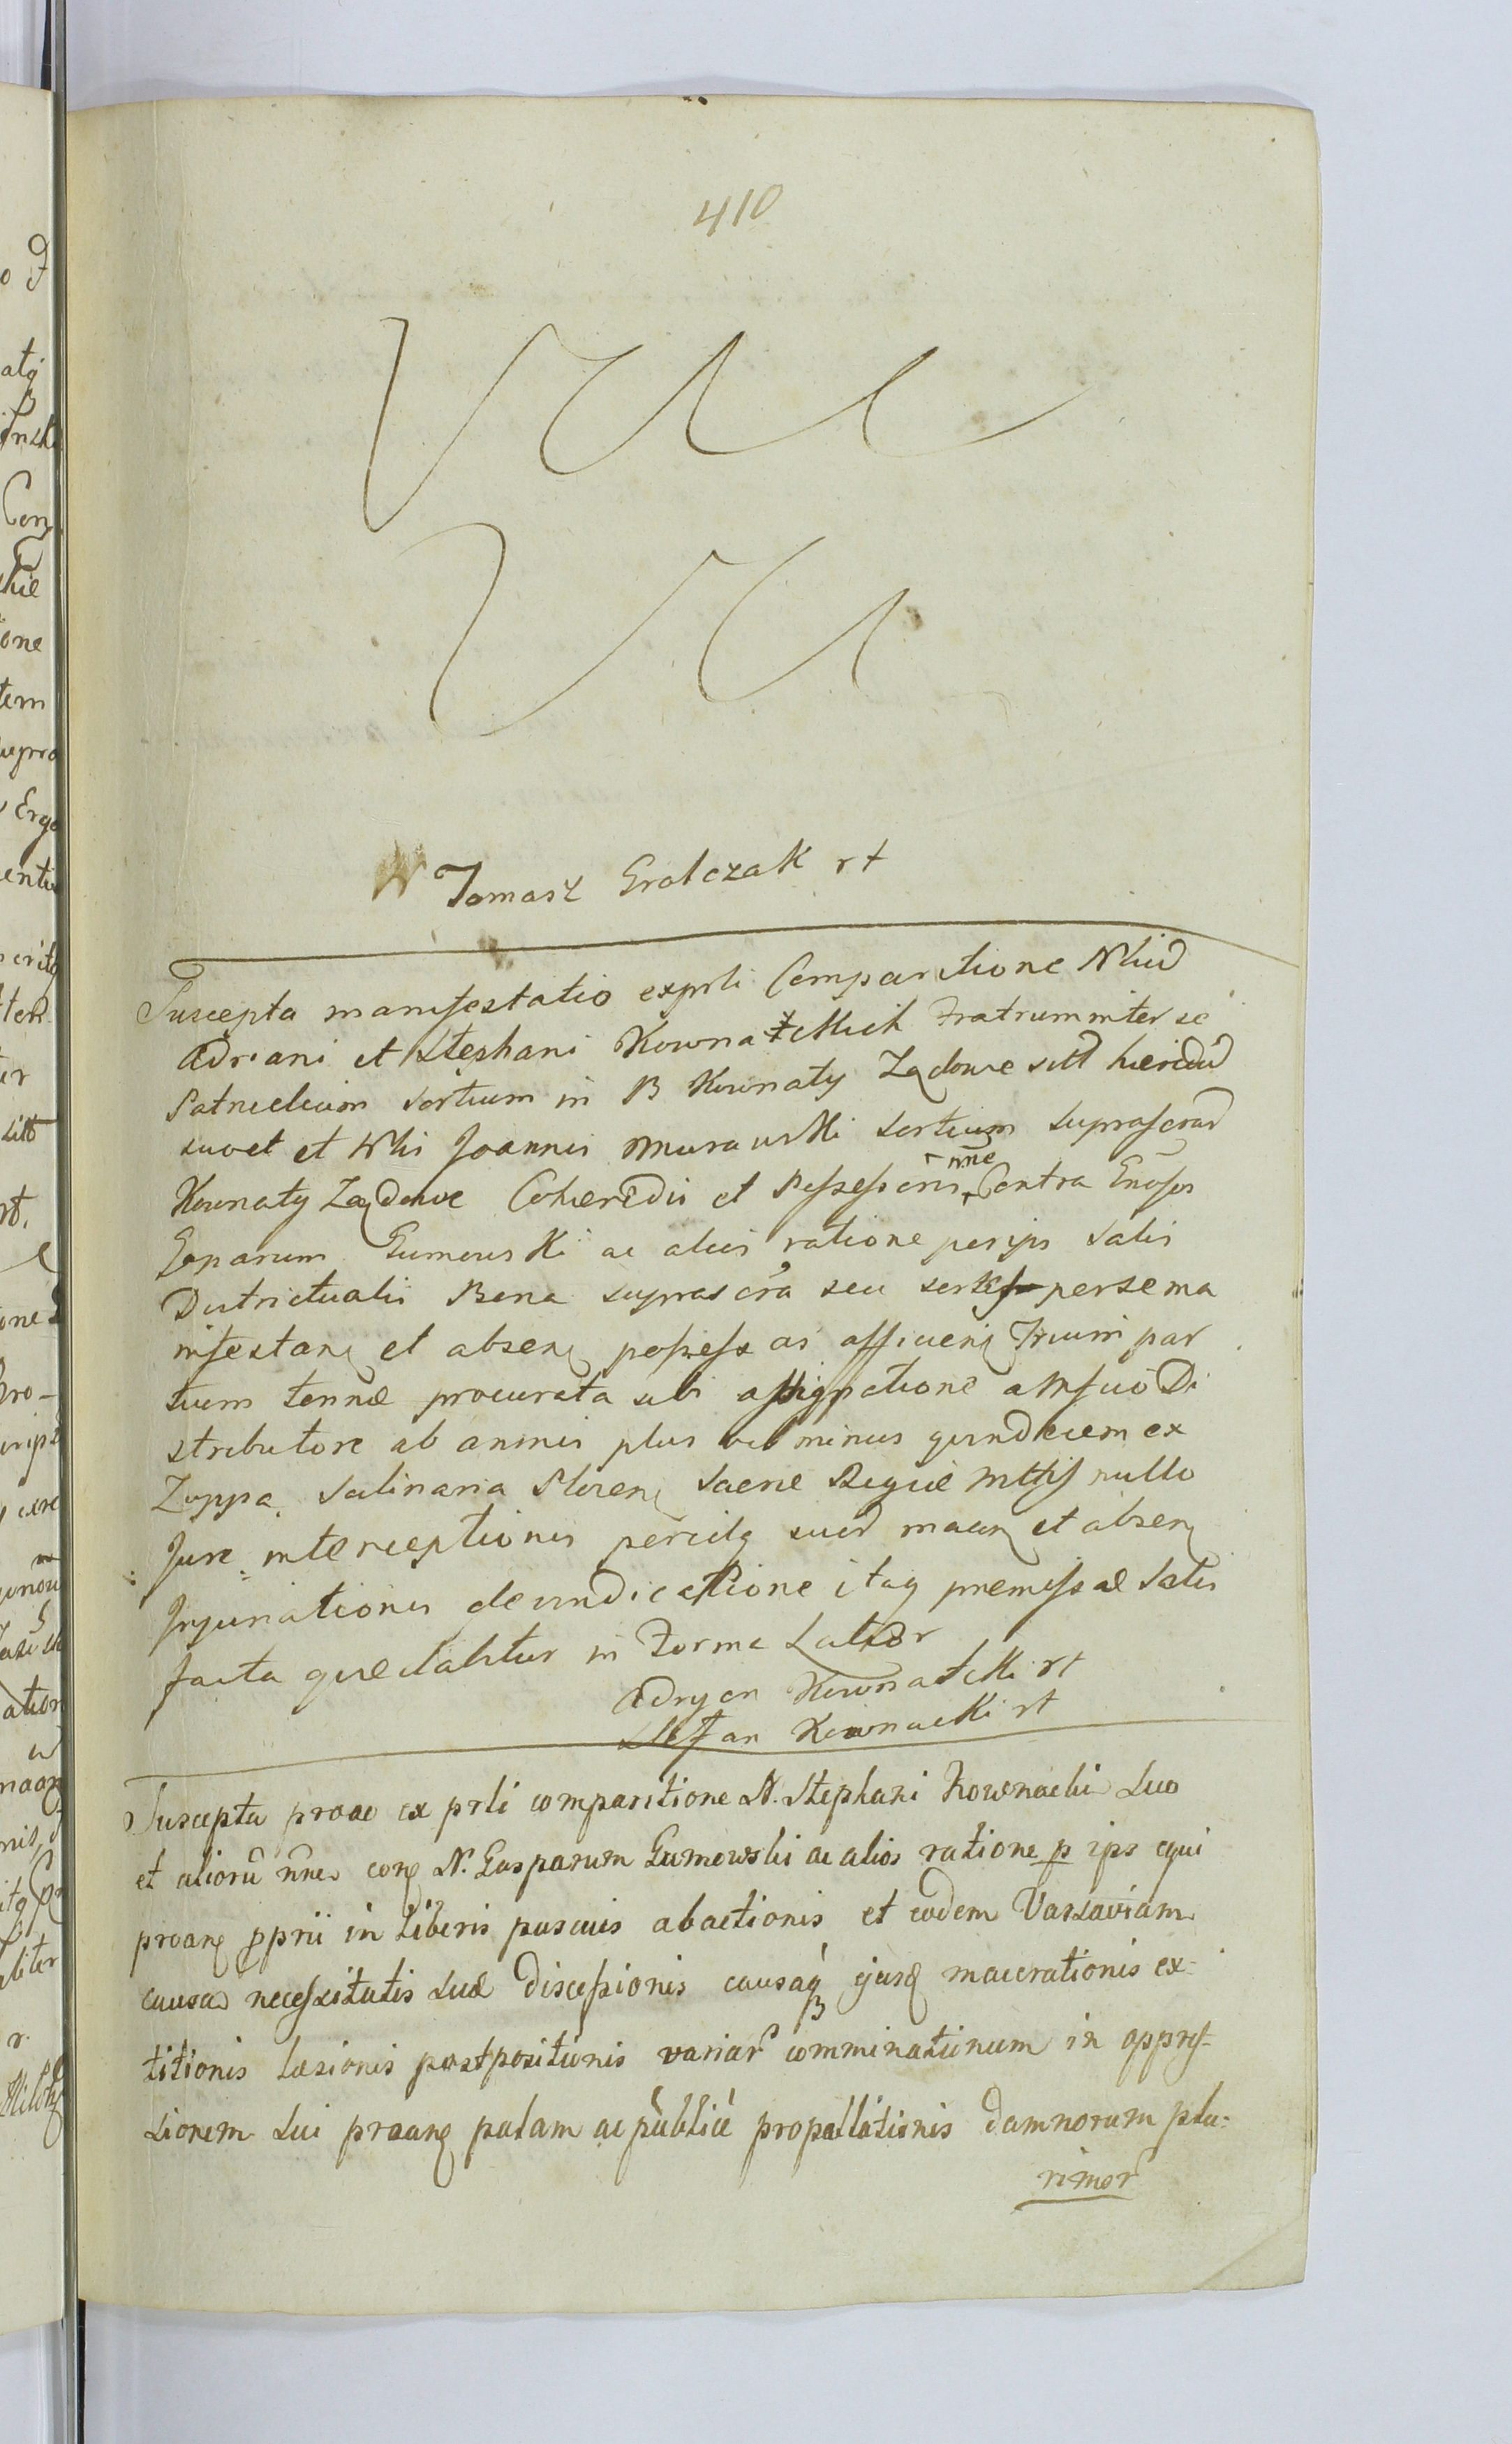 410
Tomasz Grolczak rt
Suscepta manifestatio exprli Comparitione Nliu͠
Adriani et Stephani Kownatckich Fratrum inter se
Patruelium sortium in B Kownaty Zędowe sitt hæredu͠
suo et et Nlis Joannis Murawski sortium suprascrar͠
Kownaty Zędowe Cohæredis et Possessoris nne Contra Gnosos
Gasparum Gumowski ac alios ratione per ips Salis
Districtualis Bona suprascra seu sortes per se ma
nifestanę et absenę possess as afficienę Trium par
tium tonnæ procurata sibi assignatione a Mfico Di
stributore ab annis plus vel minus quindecem ex
Zuppa Salinaria Floren Sacræ Regiæ Mttis nullo
Jure interceptionis percitę suar͠ maūn et absenę
Injuriationis de vindicatione itaq præmissæ Salis
facta quæ dabitur in Forma Latior
Adryan Kownatcki rt
Stefan Kownacki rt
Suscepta proāe ex prli comparitione N. Stephani Kownacki suo
et aliorū nn̄e conę N. Gasparum Gumowski ac alios ratione p ips equi
proanę pprii in liberis pascuis abactionis et eodem Varsaviam
causa necessitatis suæ discessionis causaq́ ejusq macerationis ex-
titionis læsionis postpositionis variar͠ comminationum in oppres-
sionem sui proanę palam ac publicè propallationis damnorum plu:
rimor͠